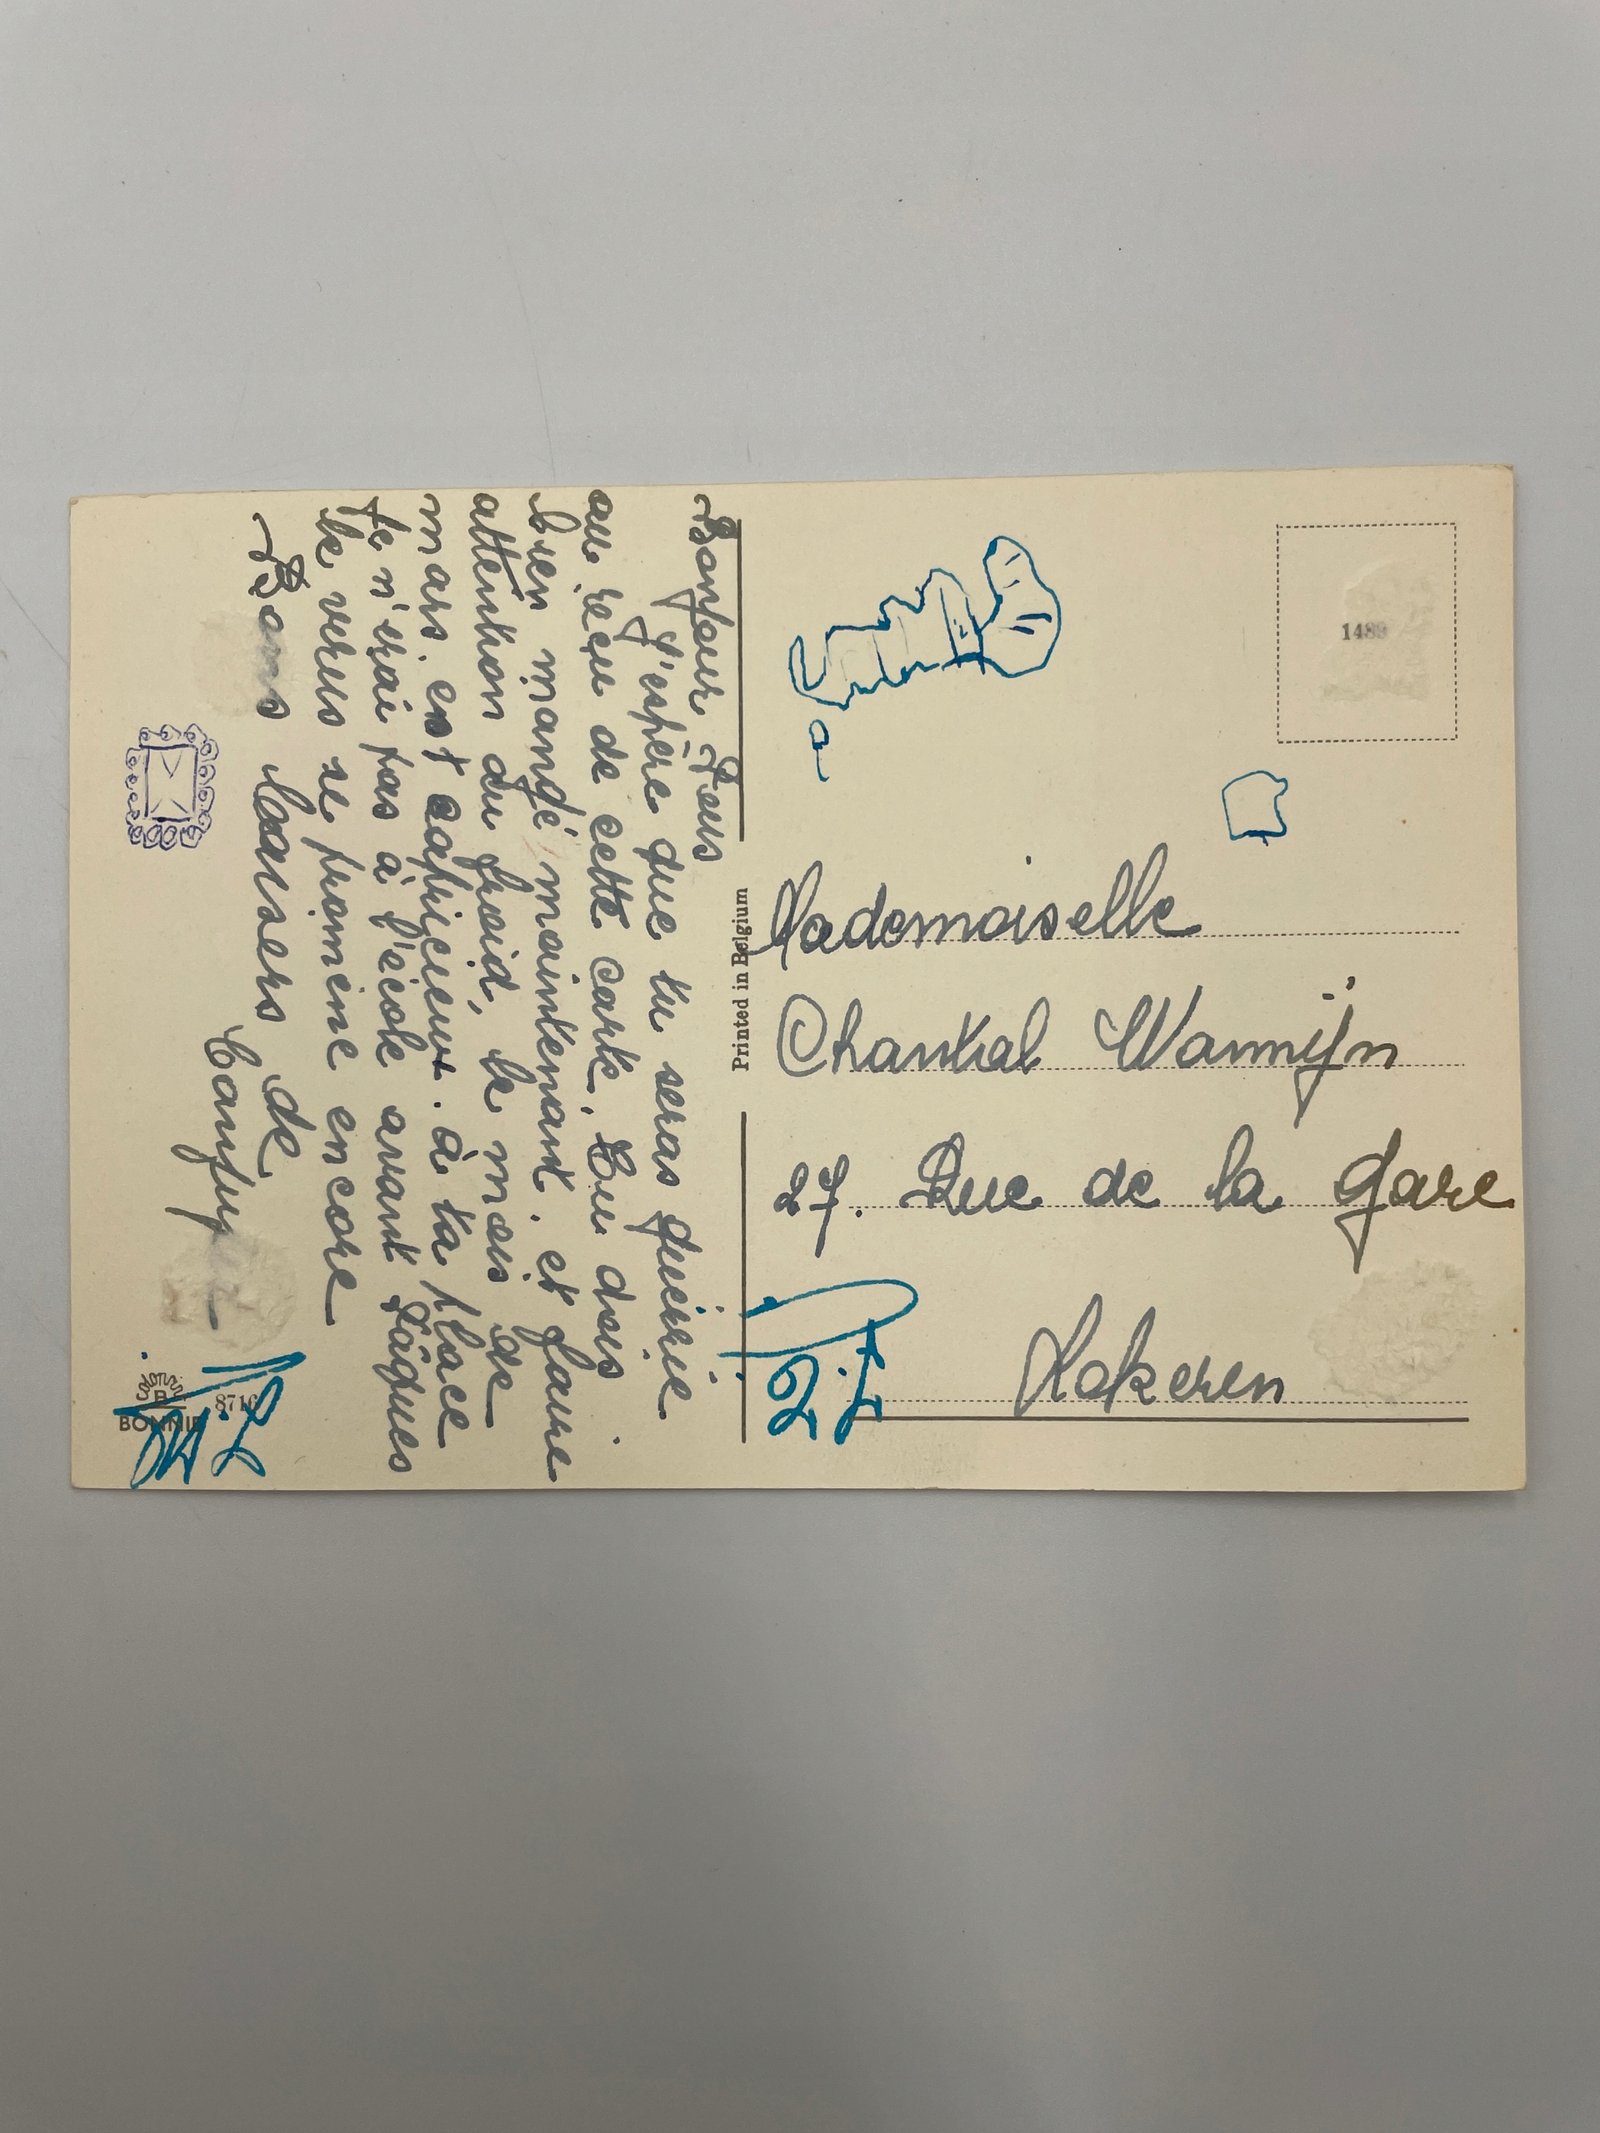 Bonjour Zeus
J'espère que tu seras guérrie
au reçu de cette carte, Tu dois
bien mangé maintenant. et faire
attention du froid, le mois de
mars est capricieux. à ta place
Je n'irai pas à l'école avant Pâques
le virus se promène encore
Bons baisers de
Printed in Belgium
1489
Mademoiselle
Chantal Wannijn
27. Rue de la Gare
Kokeren
BONNIE 8716